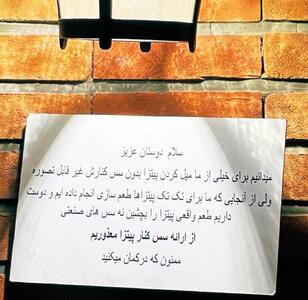 سلام دوستان عزیز
میدانیم برای خیلی از ما میل کردن پیتزا بدون سس کنارش غیر قابل تصوره
ولی از آنجایی که ما برای تک تک پیتزاها طعم سازی انجام داده ایم و دوست
داریم طعم واقعی پیتزا را بچشین نه سس های صنعتی
از ارائه سس کنار پیتزا معذوریم
ممنون که درکمان میکنید